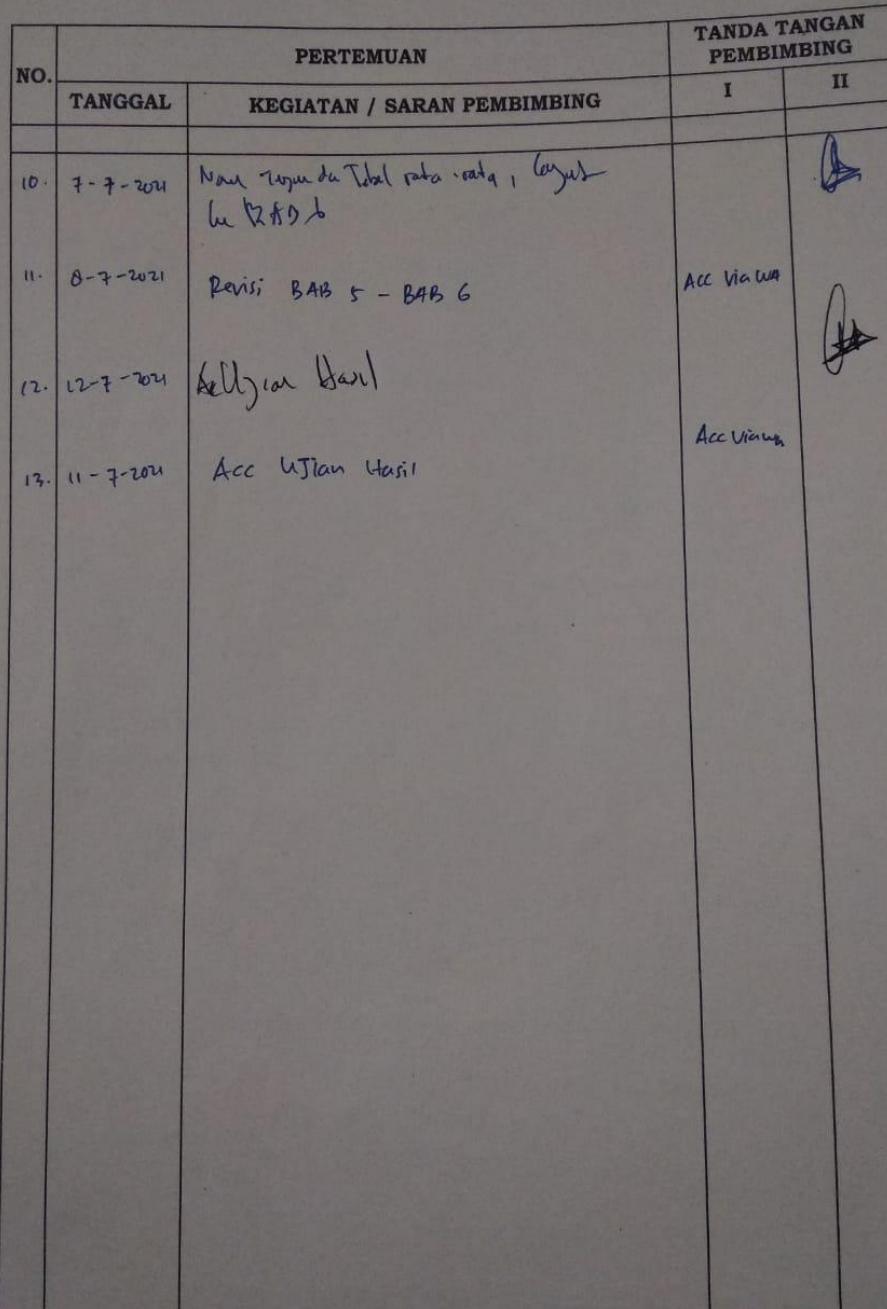 NO.
PERTEMUAN
TANDA TANGAN
PEMBIMBING
TANGGAL
KEGIATAN / SARAN PEMBIMBING
I
II
10. 7-7-2021 Tabel rata-rata,
11. 8-7-2021 Revisi BAB 5 - BAB 6 Acc Via WA
12. 12-7-2021 Hasil
13. 11-7-2021 Acc Ujian Hasil Acc Via WA